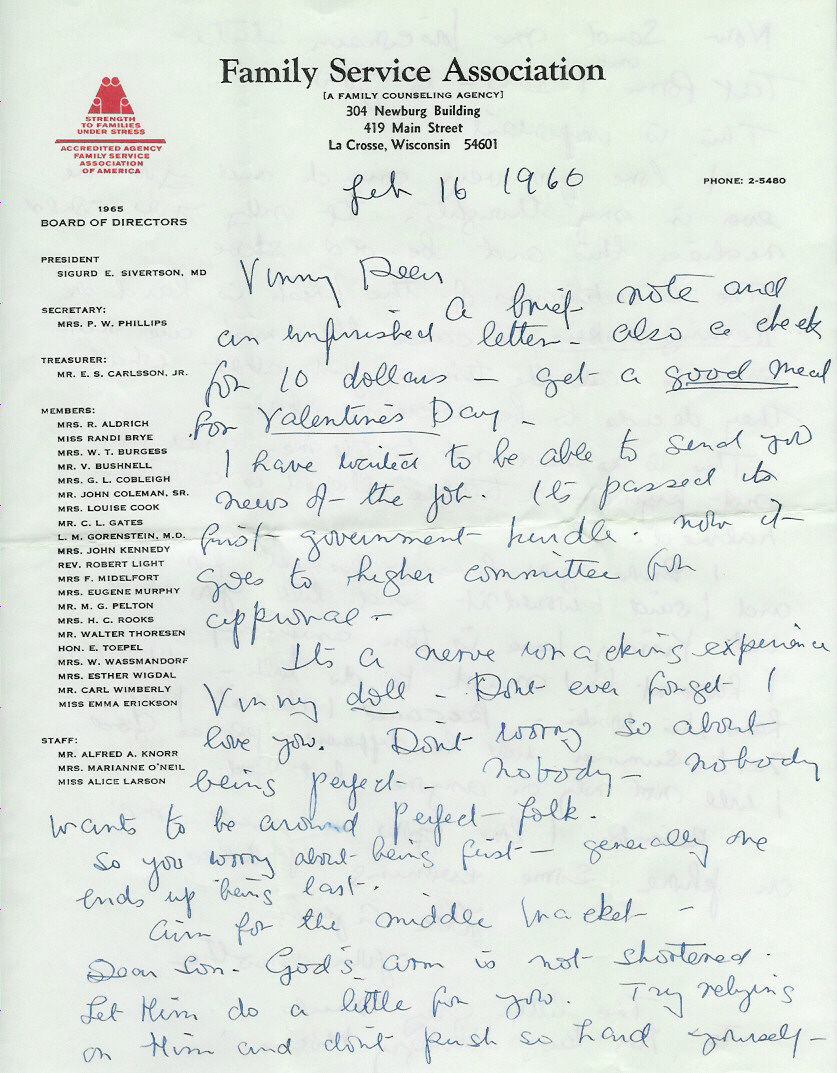 Family Service Association
[A FAMILY COUNSELING AGENCY]
304 Newburg Building
419 Main Street
La Crosse, Wisconsin 54601
STRENGTH
TO FAMILIES
UNDER STRESS
ACCREDITED AGENCY
FAMILY SERVICE
ASSOCIATION
OF AMERICA
PHONE: 2-5480
Feb 16 1966
1965
BOARD OF DIRECTORS
PRESIDENT
SIGURD E. SIVERTSON, MD
SECRETARY:
MRS. P. W. PHILLIPS
TREASURER:
MR. E. S. CARLSSON, JR.
MEMBERS:
MRS. R. ALDRICH
MISS RANDI BRYE
MRS. W. T. BURGESS
MR. V. BUSHNELL
MRS. G. L. COBLEIGH
MR. JOHN COLEMAN, SR.
MRS. LOUISE COOK
MR. C. L. GATES
L. M. GORENSTEIN, M.D.
MRS. JOHN KENNEDY
REV. ROBERT LIGHT
MRS F. MIDELFORT
MRS. EUGENE MURPHY
MR. M. G. PELTON
MRS. H. C. ROOKS
MR. WALTER THORESEN
HON. E. TOEPEL
MRS. W. WASSMANDORF
MRS. ESTHER WIGDAL
MR. CARL WIMBERLY
MISS EMMA ERICKSON
STAFF:
MR. ALFRED A. KNORR
MRS. MARIANNE O'NEIL
MISS ALICE LARSON
Vinny Deer
A brief note and
an unfinished letter - also a check
for 10 dollars - get a good meal
for Valentines Day -
I have waited to be able to send you
news of the job. Its passed its
first government hurdle. now it
goes to higher committee for
approval -
Its a nerve wracking experience
Vinny doll - Dont ever forget I
love you. Don't worry so about
being perfect - nobody - nobody
wants to be around perfect folk.
So you worry about being first - generally one
ends up being last.
Aim for the middle bracket -
Dear Son - God's arm is not shortened.
Let Him do a little for you. Try relying
on Him and don't push so hard yourself -